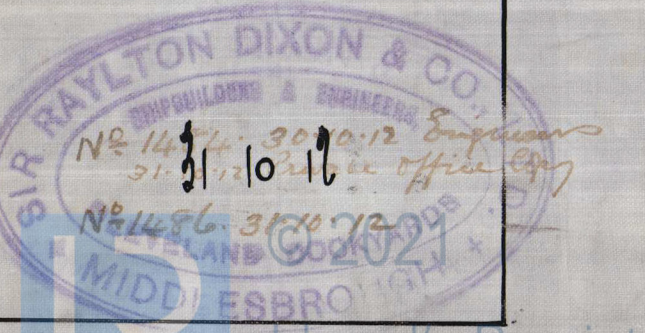 SIR RAYLTON DIXON & CO., LD.
SHIPBUILDERS & ENGINEERS,
Nº 1484. 30.10.12 Engineers
31.10.12 Private Office Copy
31 10 12
Nº 1486. 31.10.12
© 2021
CLEVELAND DOCKYARDS
MIDDLESBROUGH